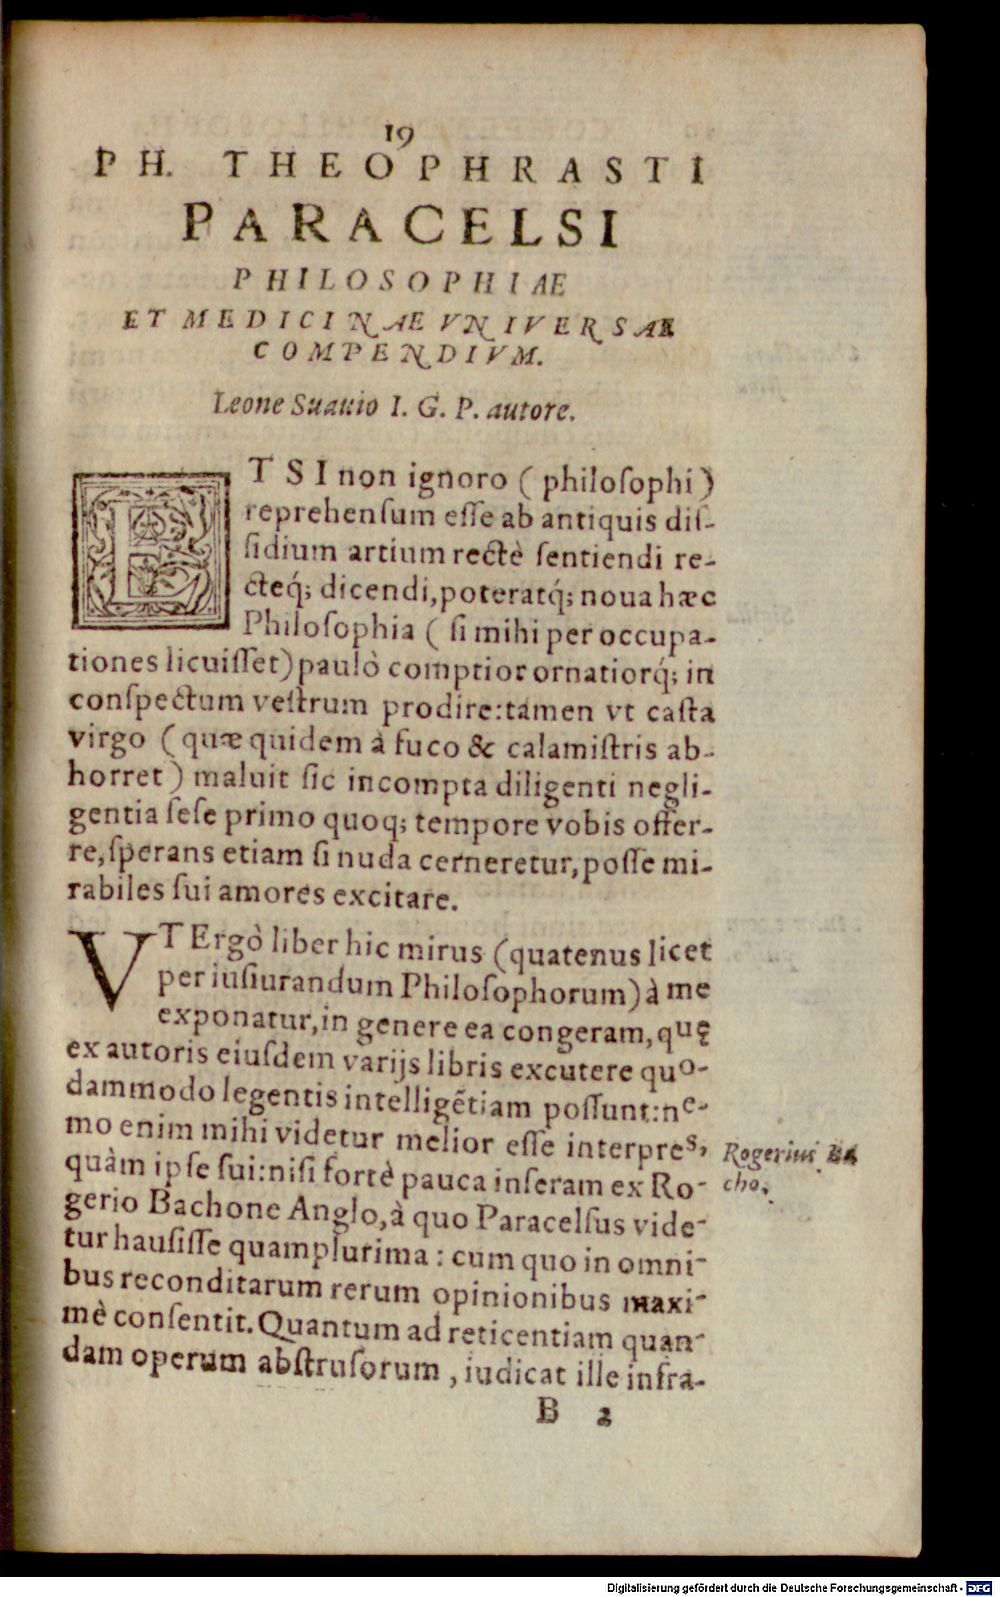 19
PH. THEOPHRASTI
PARACELSI
PHILOSOPHIAE
ET MEDICINAE VNIVERSAE
COMPENDIVM.
Leone Suauio I. G. P. autore.
ETSI non ignoro (philoſophi)
reprehenſum eſſe ab antiquis diſ-
ſidium artium rectè ſentiendi re-
cteq́; dicendi, poteratq́; noua hæc
Philoſophia (ſi mihi per occupa-
tiones licuiſſet) paulò comptior ornatiorq́; in
conſpectum veſtrum prodire: tamen vt caſta
virgo (quæ quidem à fuco & calamiſtris ab-
horret) maluit ſic incompta diligenti negli-
gentia ſeſe primo quoq; tempore vobis offer-
re, ſperans etiam ſi nuda cerneretur, poſſe mi-
rabiles ſui amores excitare.
VT Ergò liber hic mirus (quatenus licet
per iuſiurandum Philoſophorum) à me
exponatur, in genere ea congeram, quę
ex autoris eiuſdem varijs libris excutere quo-
dammodo legentis intelligẽtiam poſſunt: ne-
mo enim mihi videtur melior eſſe interpres,
quàm ipſe ſui: niſi fortè pauca inſeram ex Ro-
gerio Bachone Anglo, à quo Paracelſus vide-
tur hauſiſſe quamplurima: cum quo in omni-
bus reconditarum rerum opinionibus maxi-
mè conſentit. Quantum ad reticentiam quan-
dam operum abſtruſorum, iudicat ille infra-
Rogerius Ba
cho.
B 2
Digitalisierung gefördert durch die Deutsche Forschungsgemeinschaft - DFG